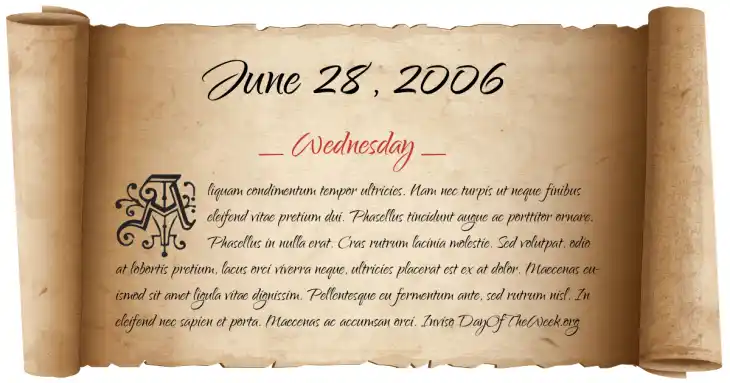 June 28, 2006
_ Wednesday _
Aliquam condimentum tempor ultricies. Nam nec turpis ut neque finibus
eleifend vitae pretium dui. Phasellus tincidunt augue ac porttitor ornare.
Phasellus in nulla erat. Cras rutrum lacinia molestie. Sed volutpat, odio
at lobortis pretium, lacus orci viverra neque, ultricies placerat est ex at dolor. Maecenas eu-
ismod sit amet ligula vitae dignissim. Pellentesque eu fermentum ante, sed rutrum nisl. In
eleifend nec sapien et porta. Maecenas ac accumsan orci. Inviso DayOfTheWeek.org